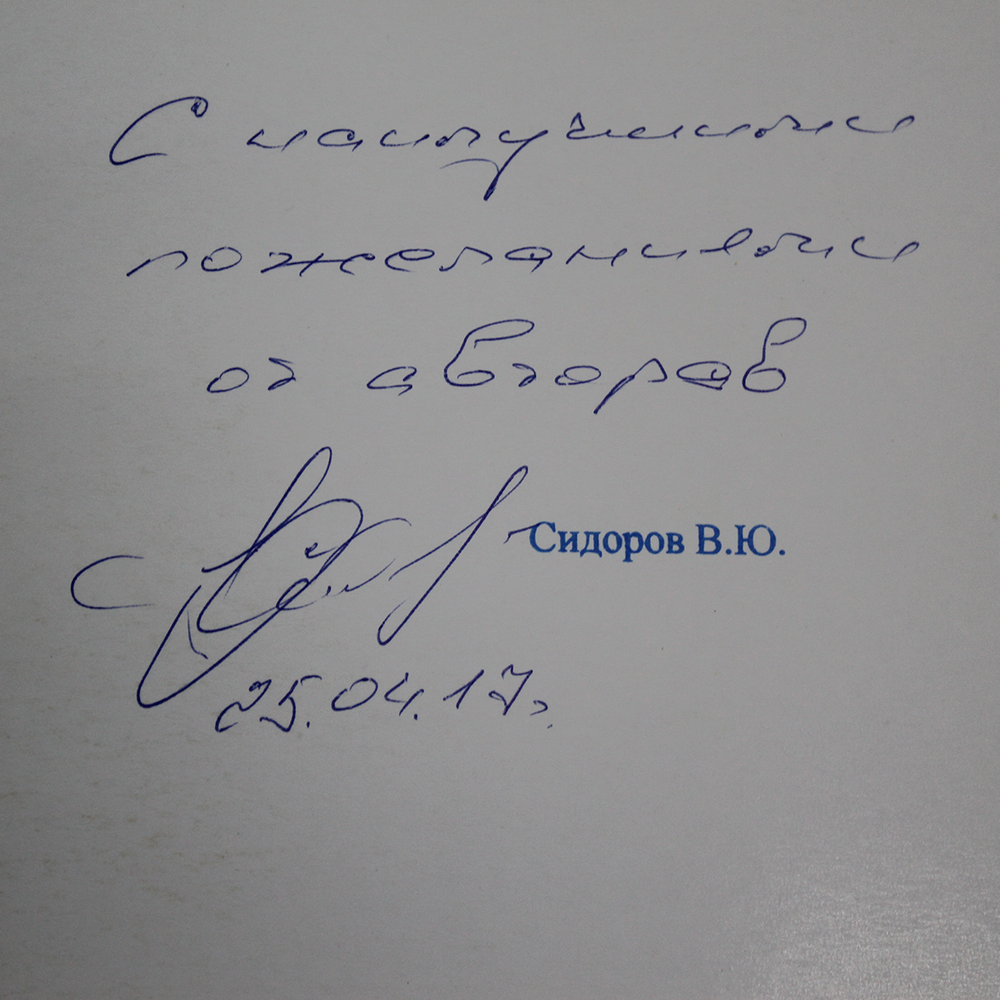 С наилучшими
пожеланиями
от авторов
Сидоров В.Ю.
25.04.17г.